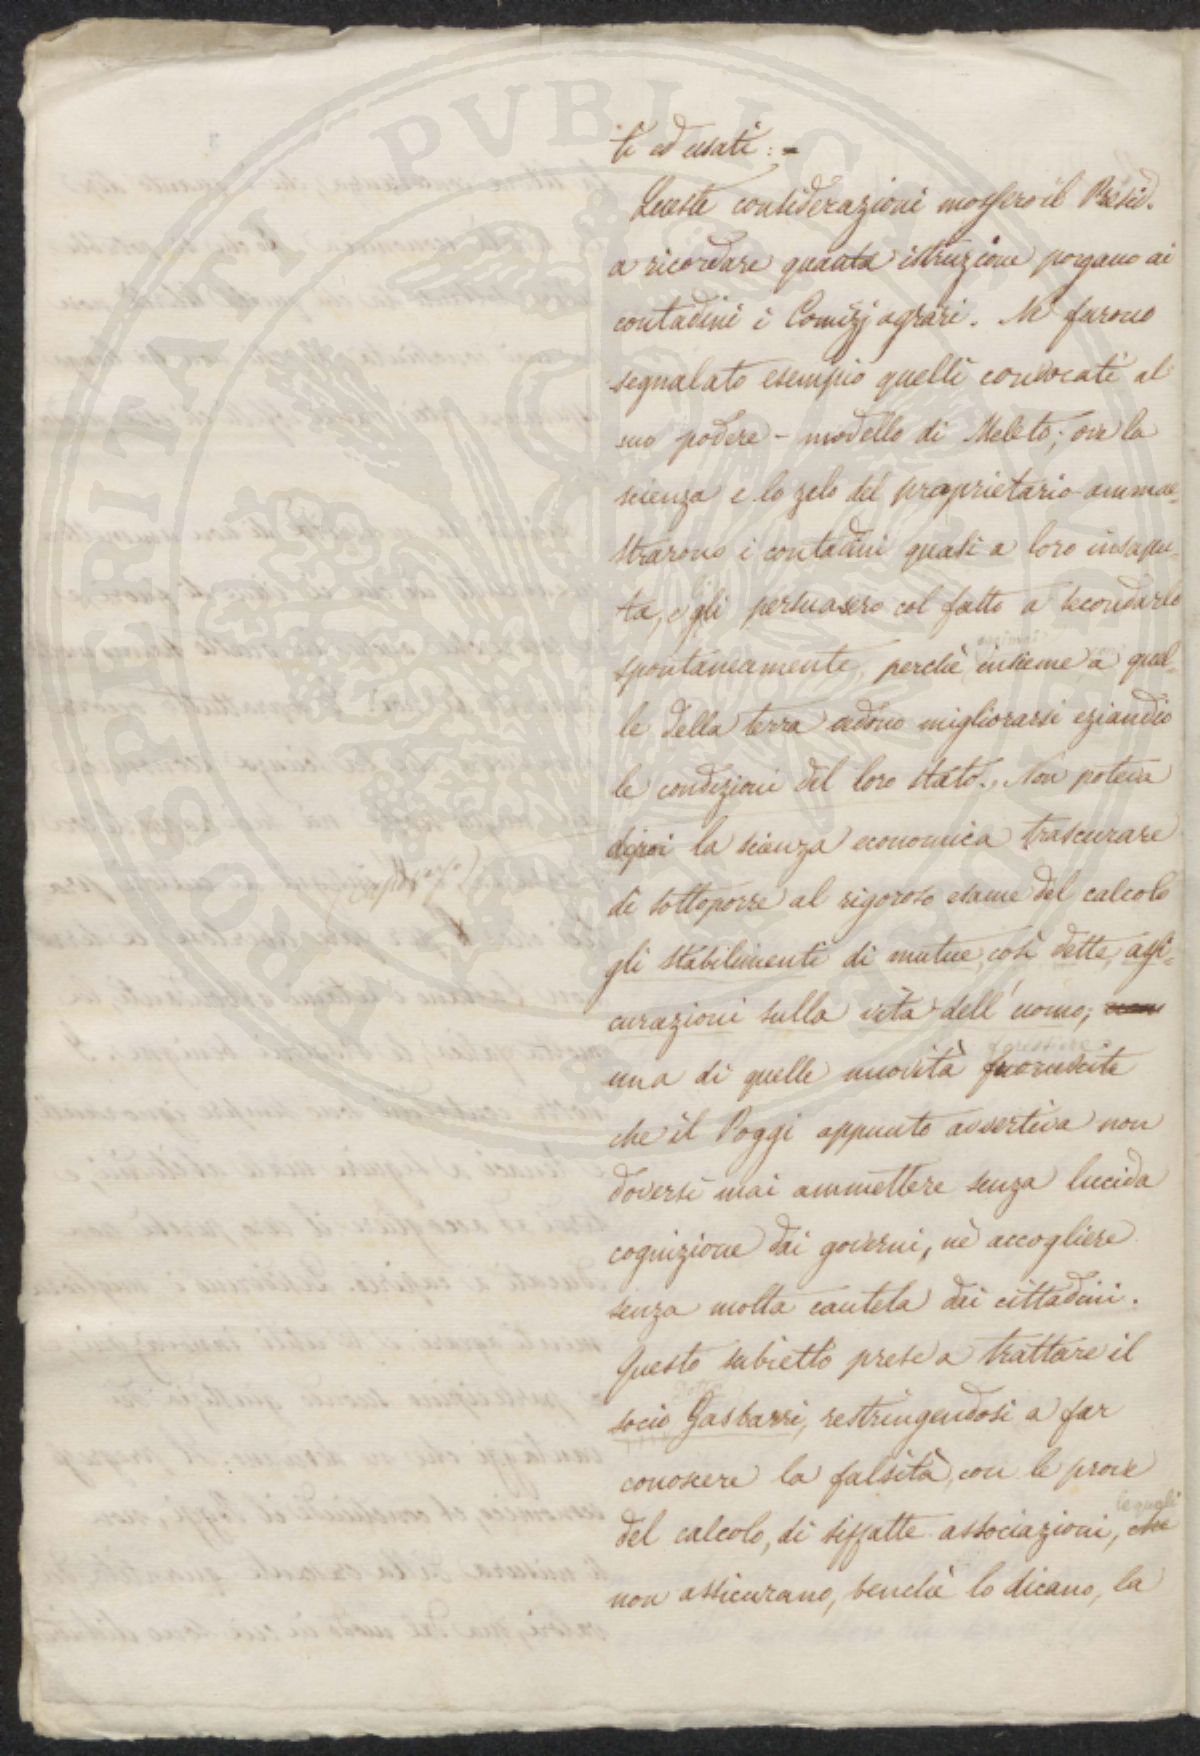 ti ed usati: =
Queste considerazioni mossero il Presid.
a ricordare quanta istruzione porgano ai
contadini i Comizj agrari. Ne furono
segnalato esempio quelli convocati al
suo podere-modello di Meleto; ove la
scienza e lo zelo del proprietario ammae-
strarono i contadini quasi a loro insapu-
ta, e gli persuasero col fatto a secondarlo
spontaneamente, perchè insieme a quel-
le della terra vedono migliorarsi eziandio
le condizioni del loro stato. Non poteva
dipoi la scienza economica trascurare
di sottoporre al rigoroso esame del calcolo
gli stabilimenti di mutue, così dette, assi-
curazioni sulla vita dell'uomo;
una di quelle novità fuoruscite
che il Poggi appunto avvertiva non
doversi mai ammettere senza lucida
cognizione dai governi, nè accogliere
senza molta cautela dai cittadini.
Questo subietto prese a trattare il
Dott.
socio Gasbarri, restringendosi a far
conoscere la falsità, con le prove
le quali
del calcolo, di siffatte associazioni, che
non assicurano, benchè lo dicano, la
PROSPERITATI PVBLICAE